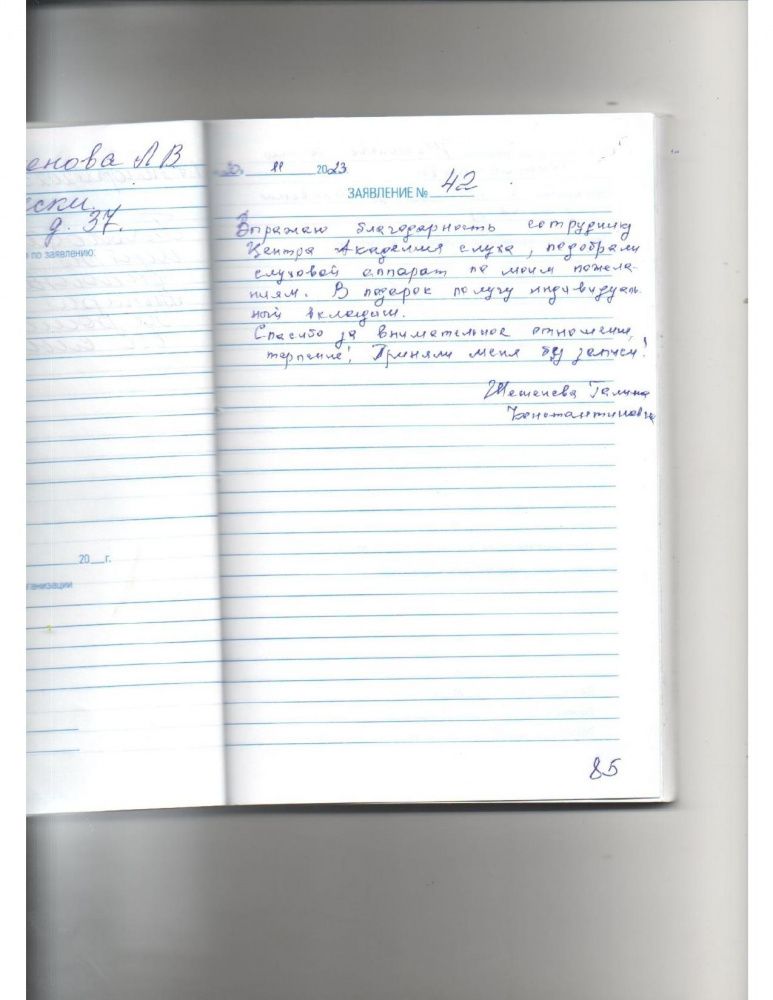 енова ЛВ
ски.
д. 37.
по заявлению:
20__г.
ганизации
20 11 2023
ЗАЯВЛЕНИЕ № 42
Выражаю благодарность сотруднику
Центра Академия слуха, подобрали
слуховой аппарат по моим пожела-
ниям. В подарок получу индивидуаль-
ный вкладыш.
Спасибо за внимательное отношение,
терпение! Приняли меня без записи!
Галина
Константиновна
85